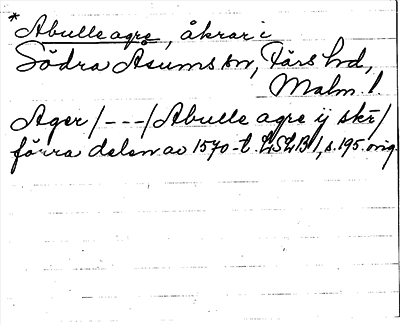 * Abulle agre, åkrar i
Södra Åsums sn, Färs hd,
Malm. l.
Ager /---/ Abulle agre ij skr/
förra delen av 1570-t. LSLB 1, s. 195 orig.